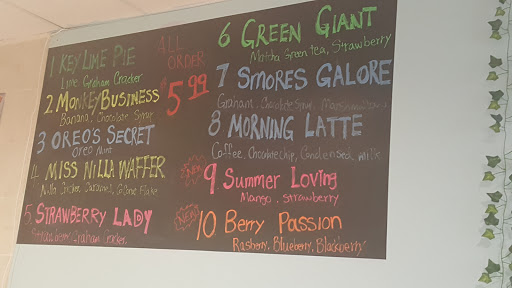 1 KEY LIME PIE
Lime Graham Cracker
2. MONKEY BUSINESS
Banana, Chocolate Syrup
3 OREO'S SECRET
Oreo Mint
4 MISS NILLA WAFFER
Caramel,
5 STRAWBERRY LADY
Strawberry, Graham Cracker
ALL
ORDER
$5.99
6 GREEN GIANT
Matcha Green tea, Strawberry
7 SMORES GALORE
Graham, Chocolate Syrup, Marshmallow
8 MORNING LATTE
Coffee, Chocolate chip, Condensed milk
New
9 Summer Loving
Mango, Strawberry
New
10 Berry Passion
Rasberry, Blueberry, Blackberry